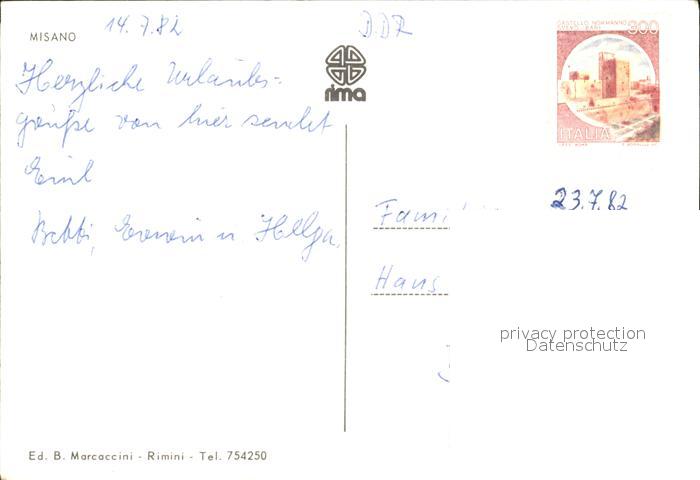 14.7.82
DDR
MISANO
rima
CASTELLO NORMANNO
SVEVO BARI
300
ITALIA
Herzliche Urlaubs-
grüße von hier sendet
Bebbi, Erwin u. Helga.
23.7.82
Fami
Hans
privacy protection
Datenschutz
Ed. B. Marcaccini - Rimini - Tel. 754250